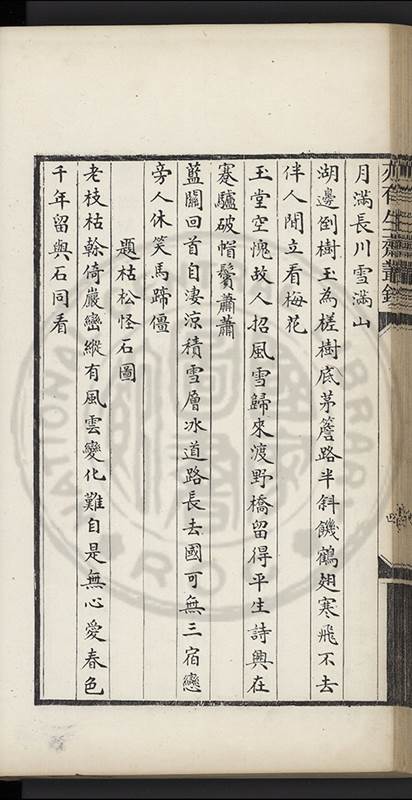 月滿長川雪滿山
湖邊倒樹玉為槎樹底茅簷路半斜饑鶴翅寒飛不去
伴人閒立看梅花
玉堂空愧故人招風雪歸來渡野橋留得平生詩興在
蹇驢破帽鬢蕭蕭
藍關回首自淒涼積雪層冰道路長去國可無三宿戀
旁人休笑馬蹄僵
題枯松怪石圖
老枝枯榦倚巖巒縱有風雲變化難自是無心愛春色
千年留與石同看